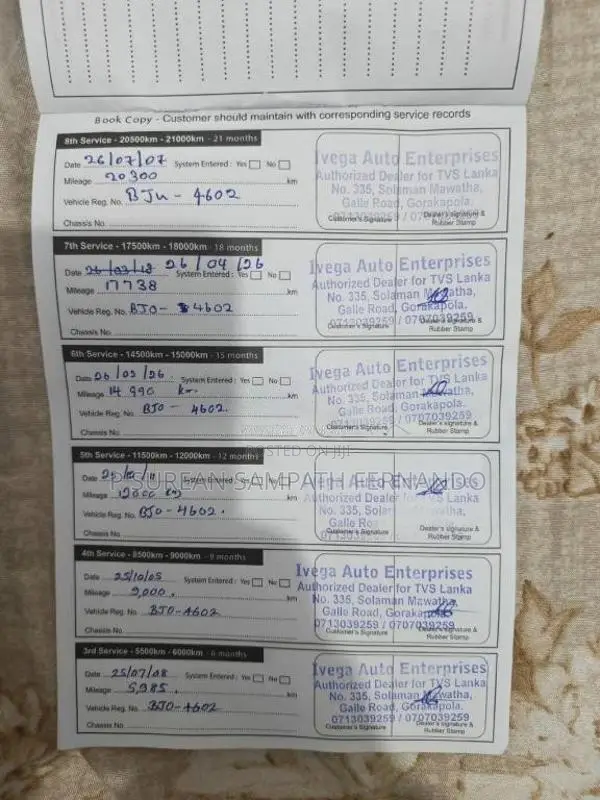 Book Copy - Customer should maintain with corresponding service records
8th Service - 20500km - 21000km - 21 months
Date 26/07/07 System Entered : Yes No
Mileage 20300 km
Vehicle Reg. No. BJu - 4602
Chassis No.
Ivega Auto Enterprises
Authorized Dealer for TVS Lanka
No. 335, Solaman Mawatha,
Galle Road, Gorakapola.
0713039259 / 0707039259
Customer's Signature
Dealer's signature &
Rubber Stamp
7th Service - 17500km - 18000km - 18 months
Date 26/04/26 System Entered : Yes No
Mileage 17738 km
Vehicle Reg. No. BJO - 4602
Chassis No.
Ivega Auto Enterprises
Authorized Dealer for TVS Lanka
No. 335, Solaman Mawatha,
Galle Road, Gorakapola.
0713039259 / 0707039259
Customer's Signature
Dealer's signature &
Rubber Stamp
6th Service - 14500km - 15000km - 15 months
Date 26/02/26. System Entered : Yes No
Mileage 14 990 km.
Vehicle Reg. No. BJO - 4602.
Chassis No.
Ivega Auto Enterprises
Authorized Dealer for TVS Lanka
No. 335, Solaman Mawatha,
Galle Road, Gorakapola.
0713039259 / 0707039259
Customer's Signature
Dealer's signature &
Rubber Stamp
POSTED ON JIJI
5th Service - 11500km - 12000km - 12 months
Date System Entered : Yes No
P SUREAN SAMPATH FERNANDO
Mileage 12000 km
Vehicle Reg. No. BJO - 4602.
Chassis No.
Authorized Dealer for TVS Lanka
No. 335, Solaman Mawatha,
Galle Gorakapola.
Customer's Signature
Dealer's signature &
Rubber Stamp
4th Service - 8500km - 9000km - 9 months
Date 25/10/05 System Entered : Yes No
Mileage 9,000. km
Vehicle Reg. No. BJO-4602
Chassis No.
Ivega Auto Enterprises
Authorized Dealer for TVS Lanka
No. 335, Solaman Mawatha,
Galle Road, Gorakapola.
0713039259 / 0707039259
Customer's Signature
Dealer's signature &
Rubber Stamp
3rd Service - 5500km - 6000km - 6 months
Date 25/07/08 System Entered : Yes No
Mileage 5985. km
Vehicle Reg. No. BJO-4602
Chassis No.
Ivega Auto Enterprises
Authorized Dealer for TVS Lanka
No. 335, Solaman Mawatha,
Galle Road, Gorakapola.
0713039259 / 0707039259
Customer's Signature
Dealer's signature &
Rubber Stamp